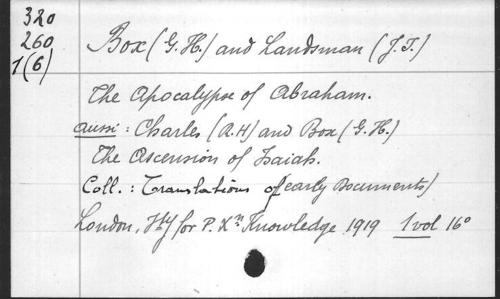 320
260
1(6)
Box (G. H.) and Landsman (J. T.)
The Apocalypse of Abraham.
aussi : Charles (R.H) and Box (G. H.)
The Ascension of Isaiah.
Coll. : Translations of (early Documents)
London, Sty for P. Xⁿ Knowledge 1919 1 vol 16°